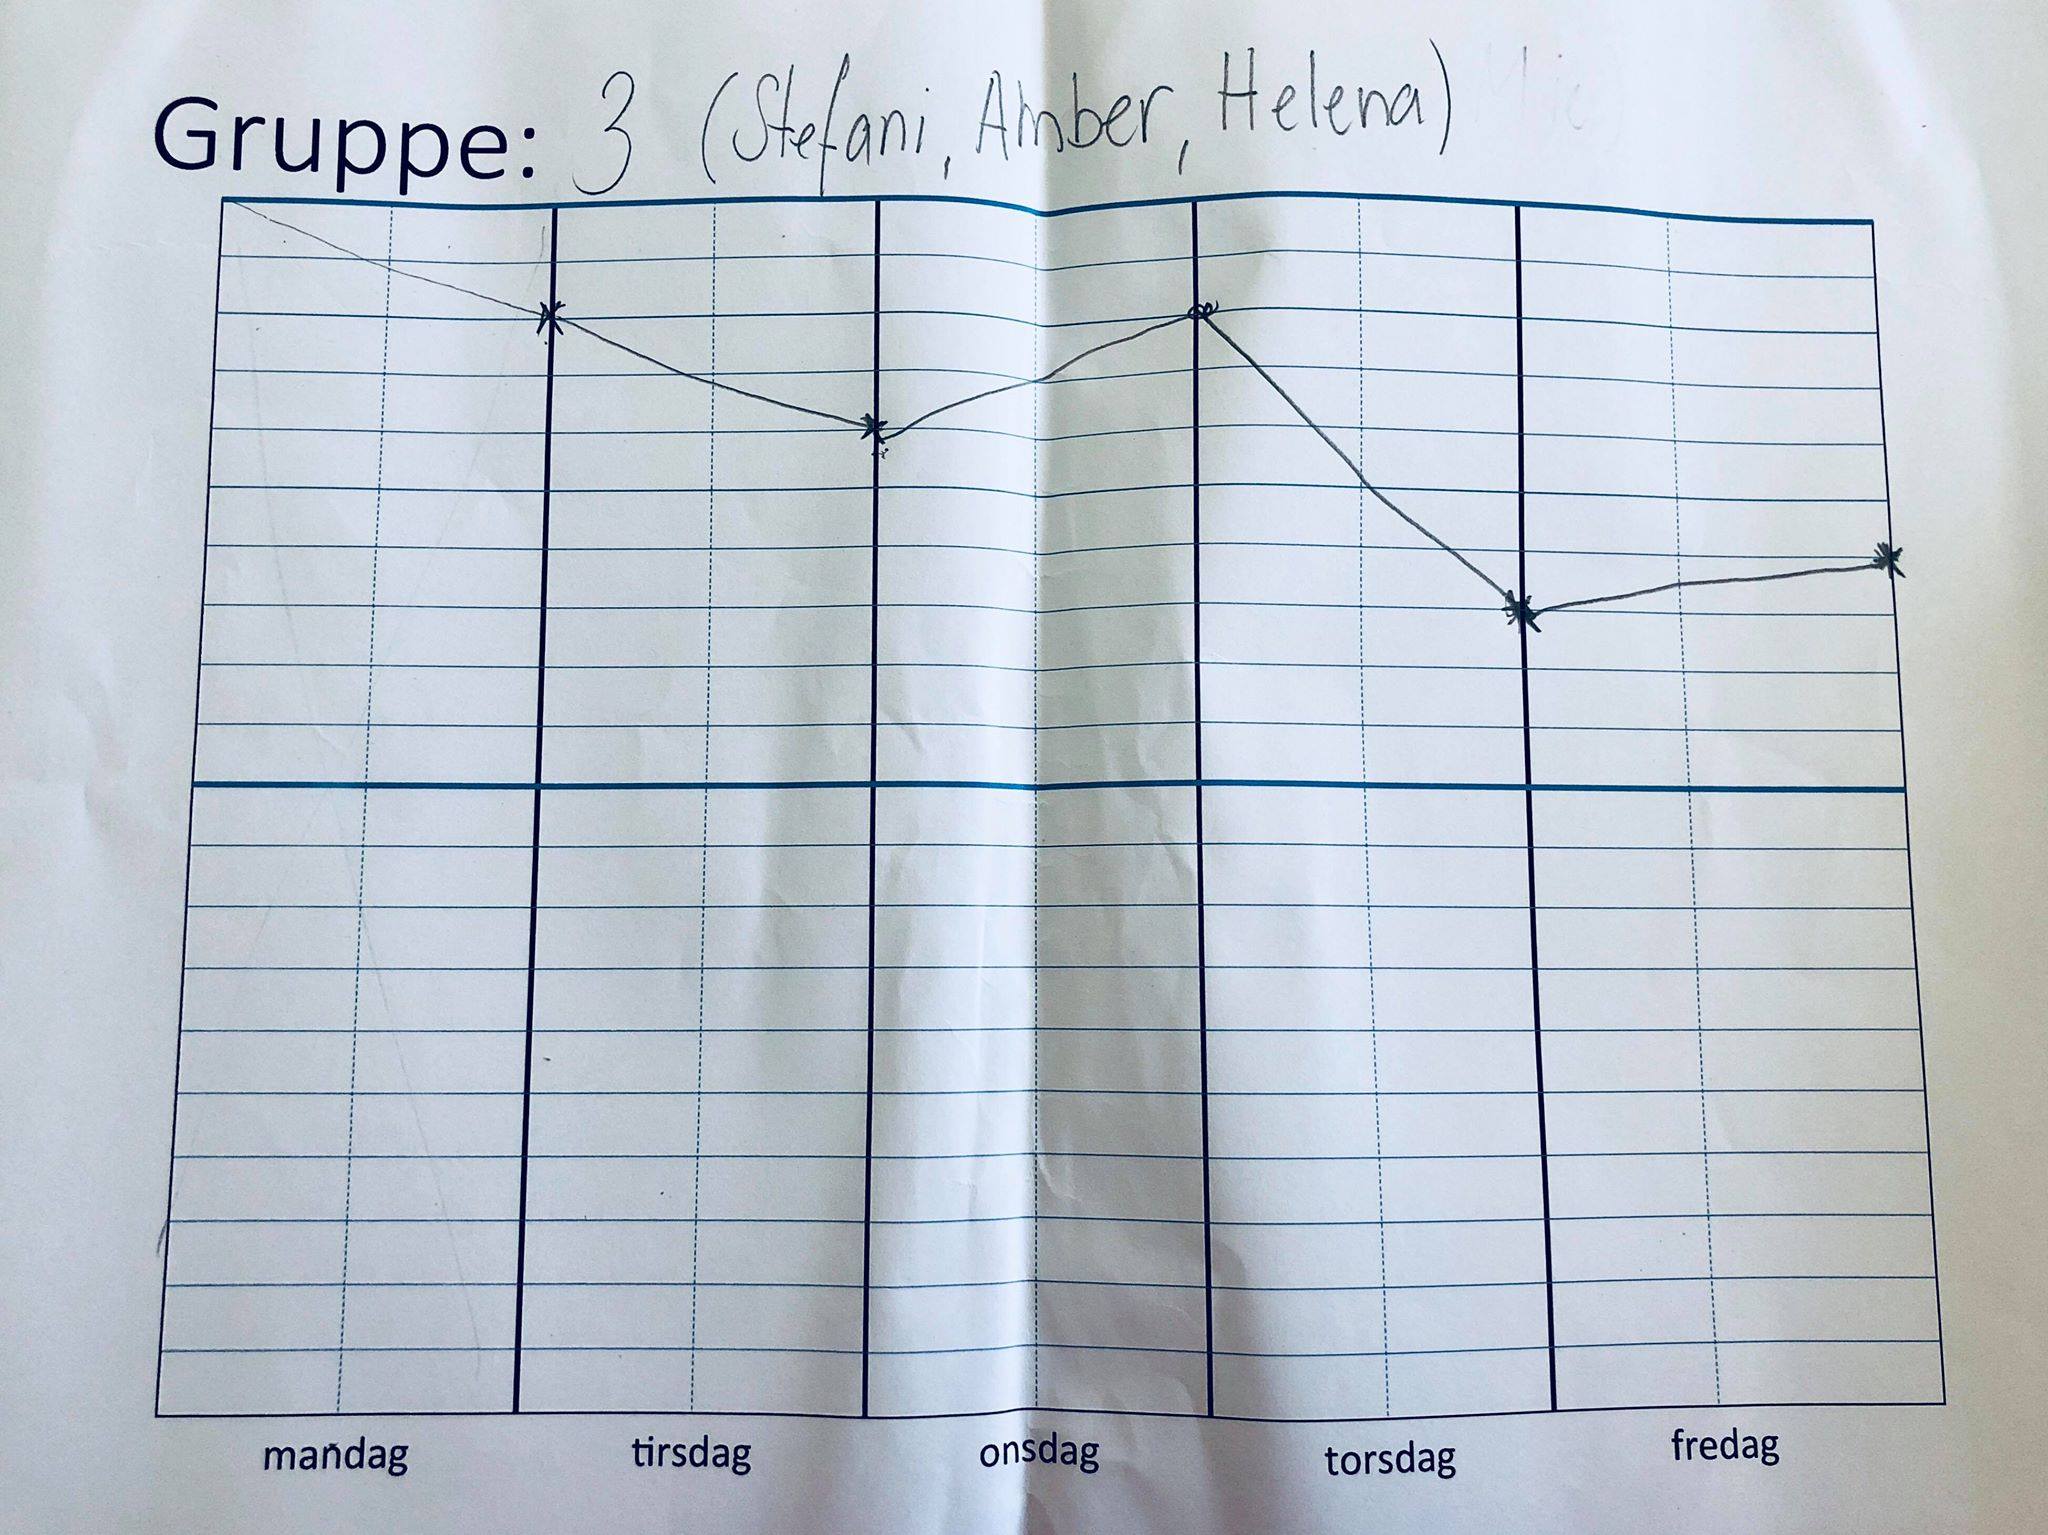 Gruppe: 3 (Stefani, Amber, Helena)
mandag tirsdag onsdag torsdag fredag